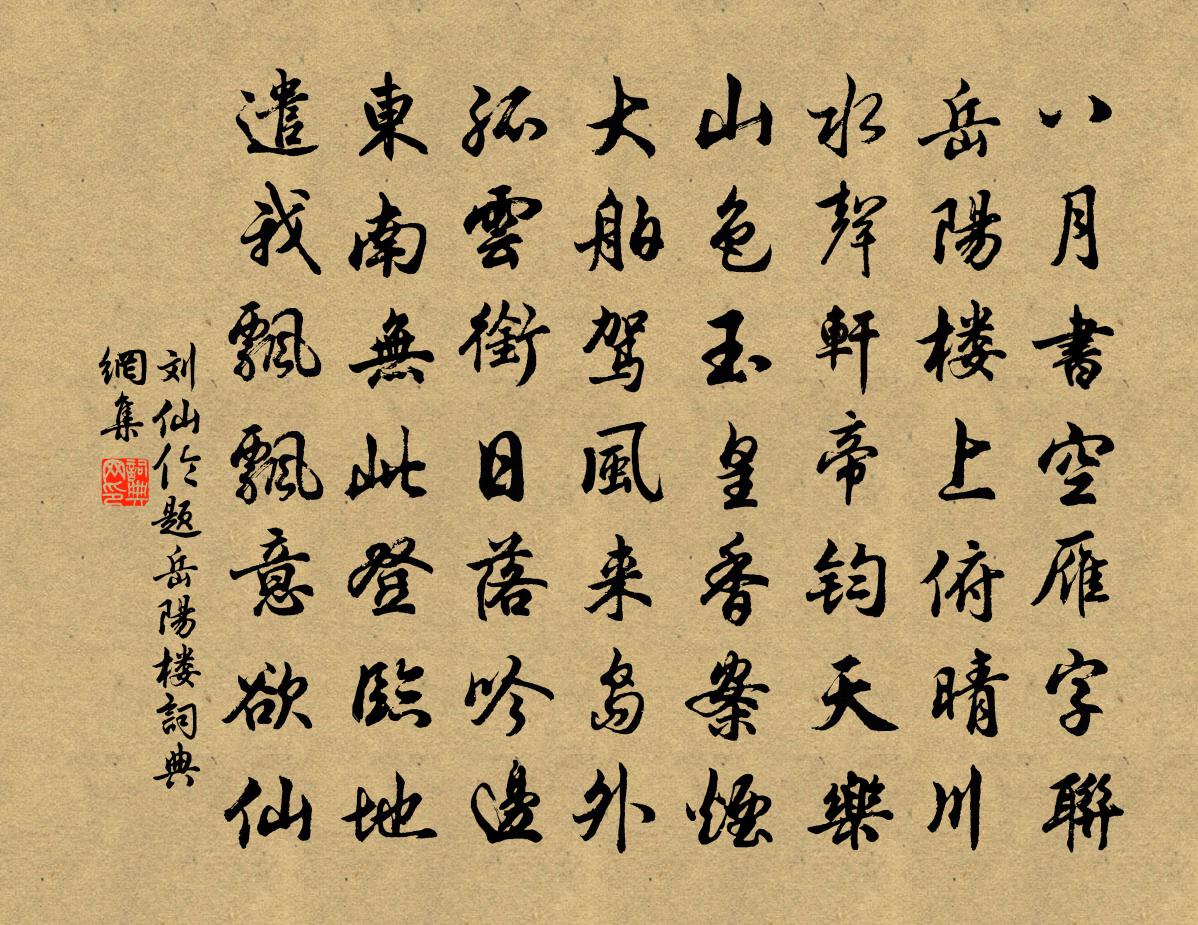 八月書空雁字聯
岳陽楼上俯晴川
水聲軒帝鈞天樂
山色玉皇香案煙
大舶駕風来島外
孤雲銜日落吟邊
東南無此登臨地
遣我飄飄意欲仙
刘仙伦题岳陽楼詞典
網集
詞典
网印